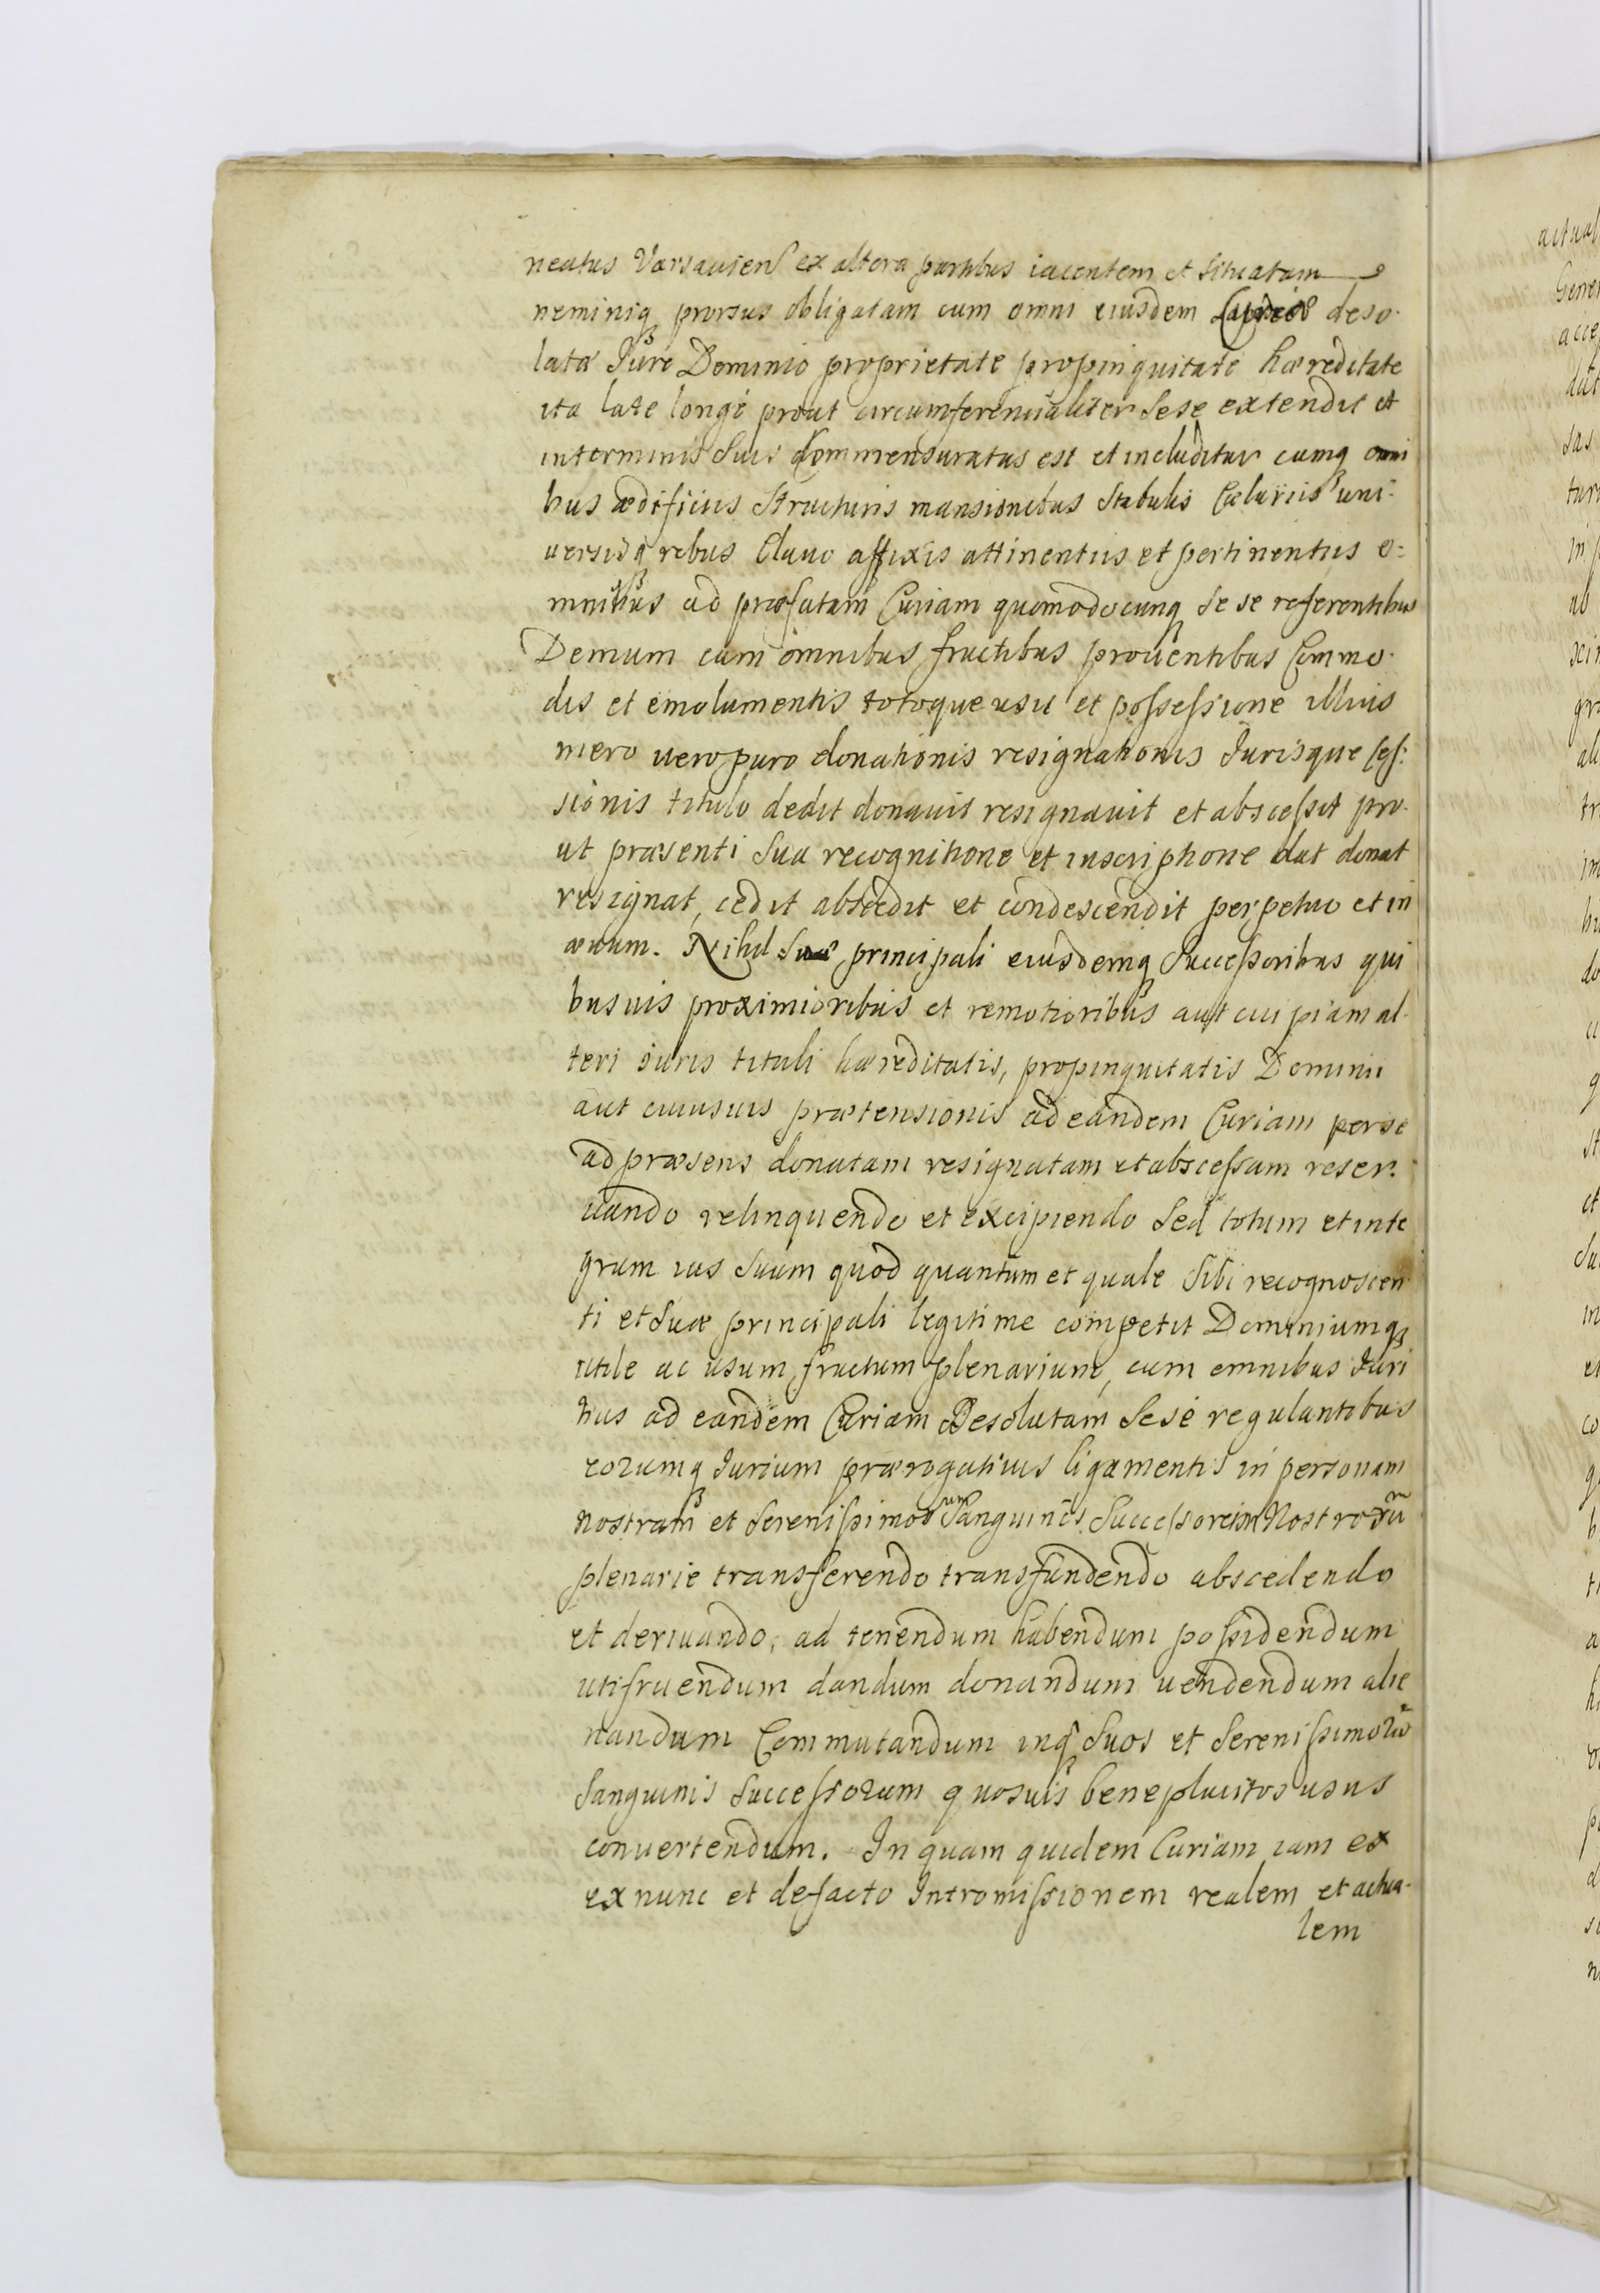 neatus Varsauien ex altera partibus iacentem et situatam
neminiq prorsus obligatam cum omni eiusdem Curiæ deso-
latæ Jure Dominio proprietate propinquitate hæreditate
ita late longe prout circumferencialiter sese extendit et
interminis suis commensuratus est et includitur cumq omni
bus ædificiis structuris mansionibus stabulis Cælariis uni-
uersisq rebus clauo affixis attinentiis et pertinentiis o=
mnibus ad præfatam Curiam quomodocunq se se referentibus
Demum cum omnibus fructibus prouentibus commo-
dis et emolumentis totoque usu et possessione illius
mero uero puro donationis resignationis Jurisque ces:
sionis titulo dedit donauit resignauit et abscessit pro-
ut præsenti sua recognitione et inscriptione dat donat
resignat, cedit abscedit et condescendit perpetuo et in
æuum. Nihil suæ principali eiusdemq successoribus qui
busuis proximioribus et remotioribus aut cuipiam al-
teri iuris tituli hæreditatis, propinquitatis Dominii
aut cuiusuis prætensionis ad eandem Curiam per se
ad præsens donatam resignatam et abscessam reser-
uando relinquendo et excipiendo sed totum et inte
grum ius suum quod quantum et quale sibi recognoscen
ti et suæ principali legitime competit Dominiumq
utile ac usum fructum plenarium, cum omnibus Juri
bus ad eandem Curiam Desolatam sese regulantibus
eorumq Jurium prærogatiuis ligamentis in personam
nostram et serenissimorum Sanguinis Successorum Nostrorũ
plenarie transferendo transfundendo abscedendo
et deriuando, ad tenendum habendum possidendum
utifruendum dandum donandum uendendum alie
nandum Commutandum inq suos et serenissimorũ
sanguinis successorum quosuis beneplacitos usus
conuertendum. In quam quidem Curiam iam ex
ex nunc et defacto Intromissionem realem et actua-
lem